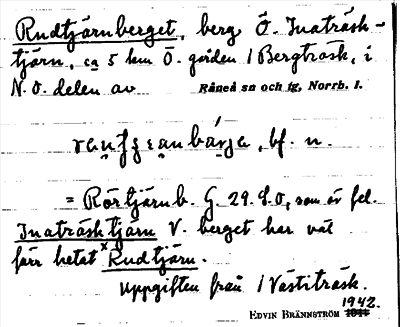 Rudtjärnberget, berg Ö. Inaträsk-
tjärn, ca 5 km Ö. gården 1 Bergträsk, i
N.O. delen av Råneå sn och tg, Norrb. l.
bf. n.
= Rörtjärnb. G. 29. S.O, som är fel.
Inaträsktjärn V. berget har väl
förr hetat x Rudtjärn.
Uppgiften från 1 Västiträsk.
1942.
EDVIN BRÄNNSTRÖM 1941